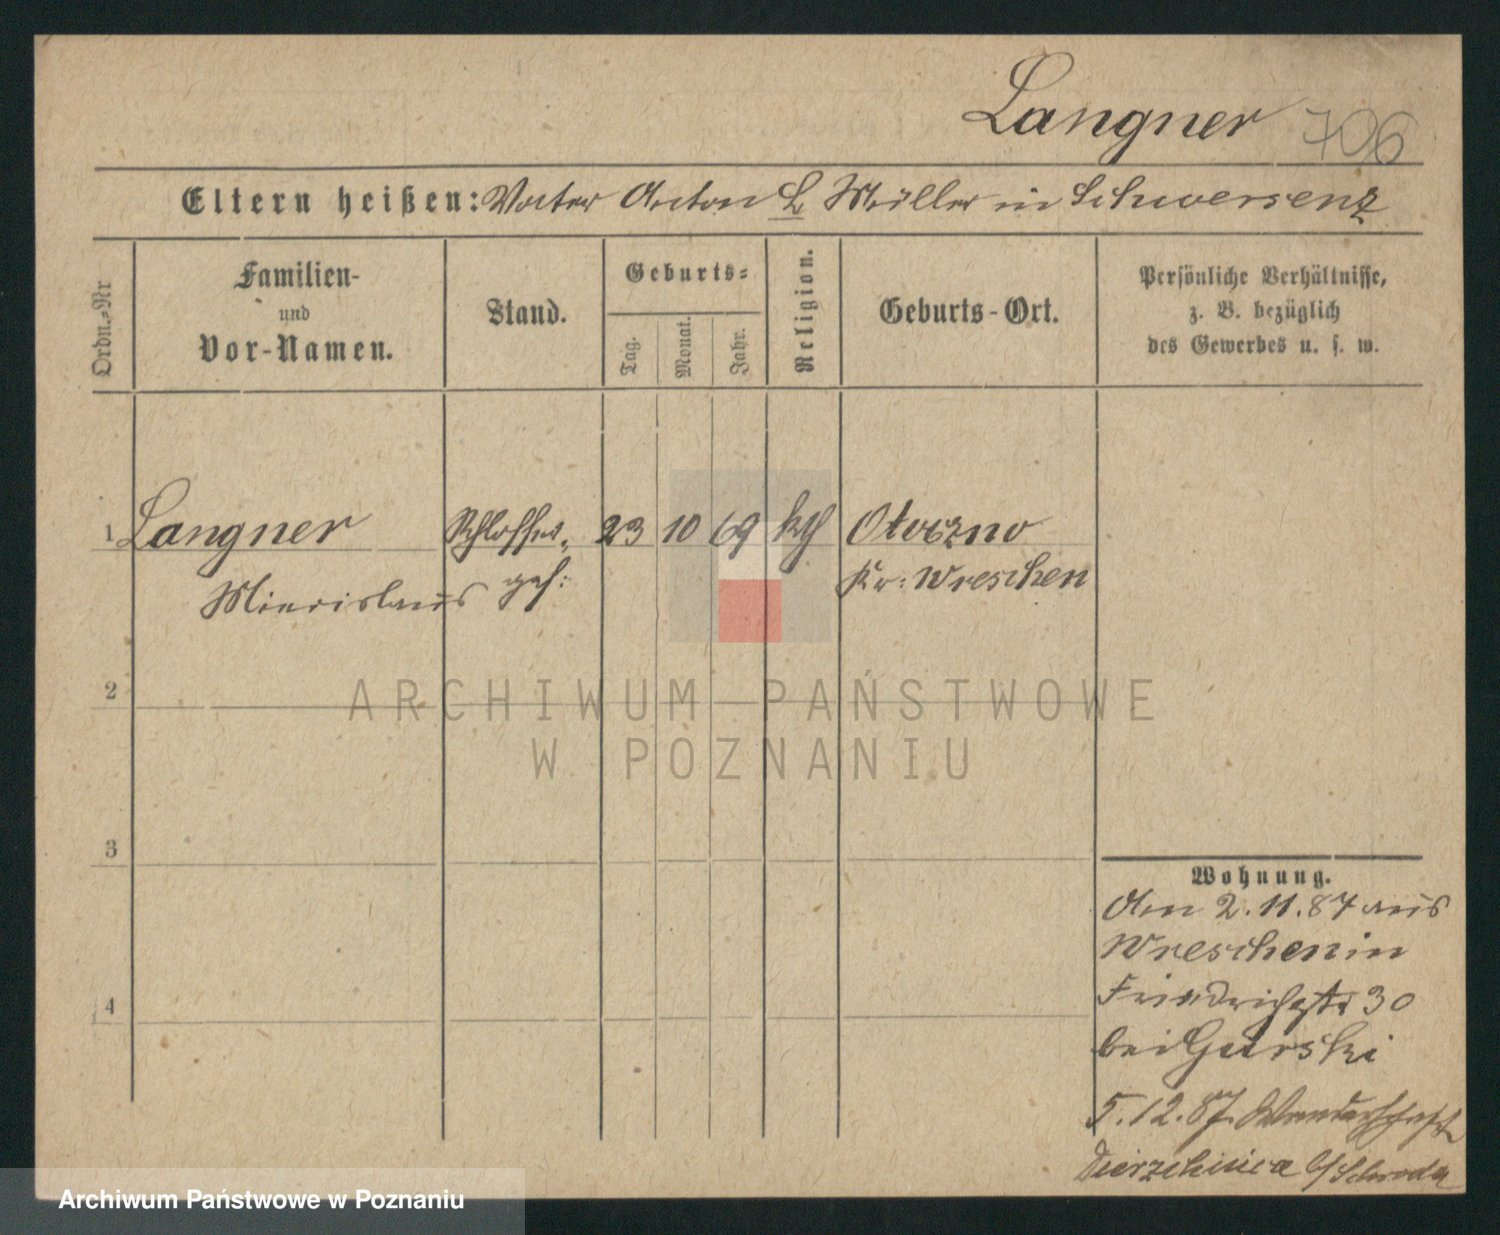 Langner 706
Eltern heißen: Vater Anton L Müller in Schwersenz
Ordn.=Nr
Familien-
und
Vor-Namen.
Stand.
Geburts=
Tag.
Monat.
Jahr.
Religion.
Geburts-Ort.
Persönliche Verhältnisse,
z. B. bezüglich
des Gewerbes u. s. w.
1 Langner Schlosser 23 10 69 kth Otoczno
Miecislaus ges: Kr: Wreschen
2
ARCHIWUM PAŃSTWOWE
W POZNANIU
3
Wohnung.
Den 2.11.87 aus
Wreschen in
Friedrichstr 30
bei Gurski
4
5.12.87. Wanderschaft
b/Schroda
Archiwum Państwowe w Poznaniu